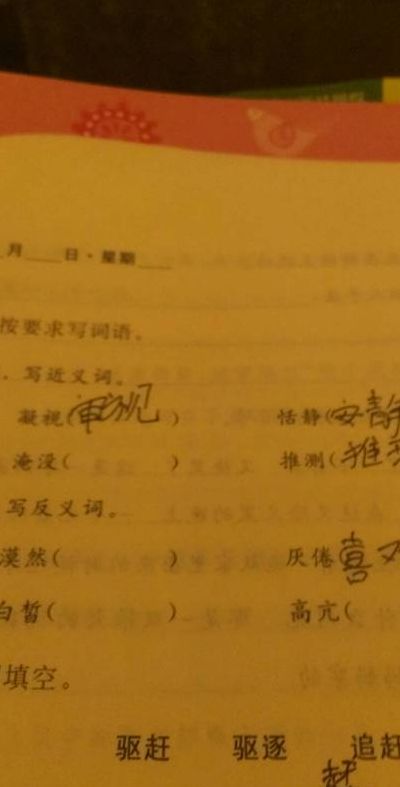 月____日·星期____
按要求写词语。
写近义词。
凝视(审视) 恬静(安静
淹没( ) 推测(推
写反义词。
漠然( ) 厌倦(喜
白皙( ) 高亢(
填空。
驱赶 驱逐 追赶
赶